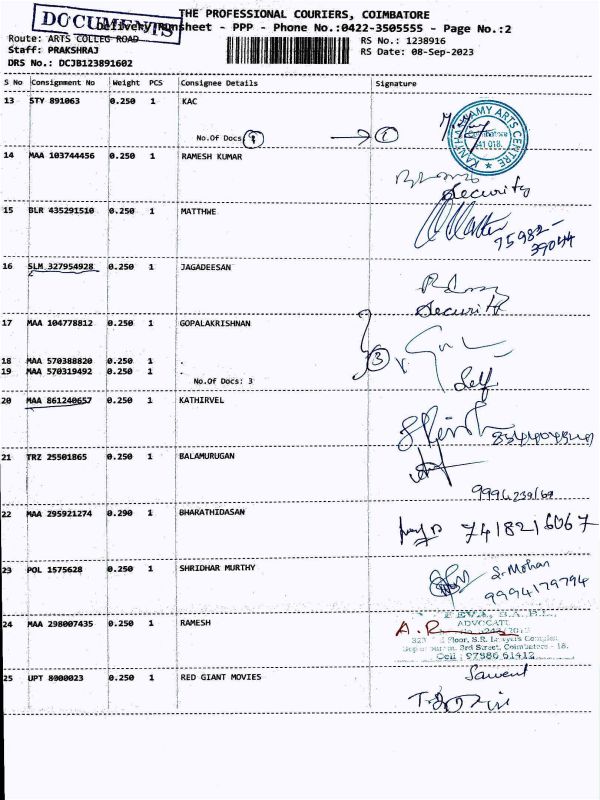 DOCUMENTS
THE PROFESSIONAL COURIERS, COIMBATORE
Delivery Runsheet - PPP - Phone No.:0422-3505555 - Page No.:2
Route: ARTS COLLEG ROAD
RS No.: 1238916
Staff: PRAKSHRAJ
RS Date: 08-Sep-2023
DRS No.: DCJB123891602
S No Consignment No Weight PCS Consignee Details Signature
13 STY 891063 0.250 1 KAC
No.Of Docs
14 MAA 103744456 0.250 1 RAMESH KUMAR
Security
15 BLR 435291510 0.250 1 MATTHWE
75982-
39044
16 SLM 327954928 0.250 1 JAGADEESAN
Security
17 MAA 104778812 0.250 1 GOPALAKRISHNAN
18 MAA 570388820 0.250 1 .
3
19 MAA 570319492 0.250 1 .
No.Of Docs: 3
Self
20 MAA 861240657 0.250 1 KATHIRVEL
21 TRZ 25501865 0.250 1 BALAMURUGAN
22 MAA 295921274 0.290 1 BHARATHIDASAN
7418216067
23 POL 1575628 0.250 1 SHRIDHAR MURTHY
S. Mohan
9994179794
24 MAA 298007435 0.250 1 RAMESH
A.R
ADVOCATE
Floor, S.R. Lawyers Complex
3rd Street, Coimbatore - 18.
Cell : 97886 61412
25 UPT 8000023 0.250 1 RED GIANT MOVIES